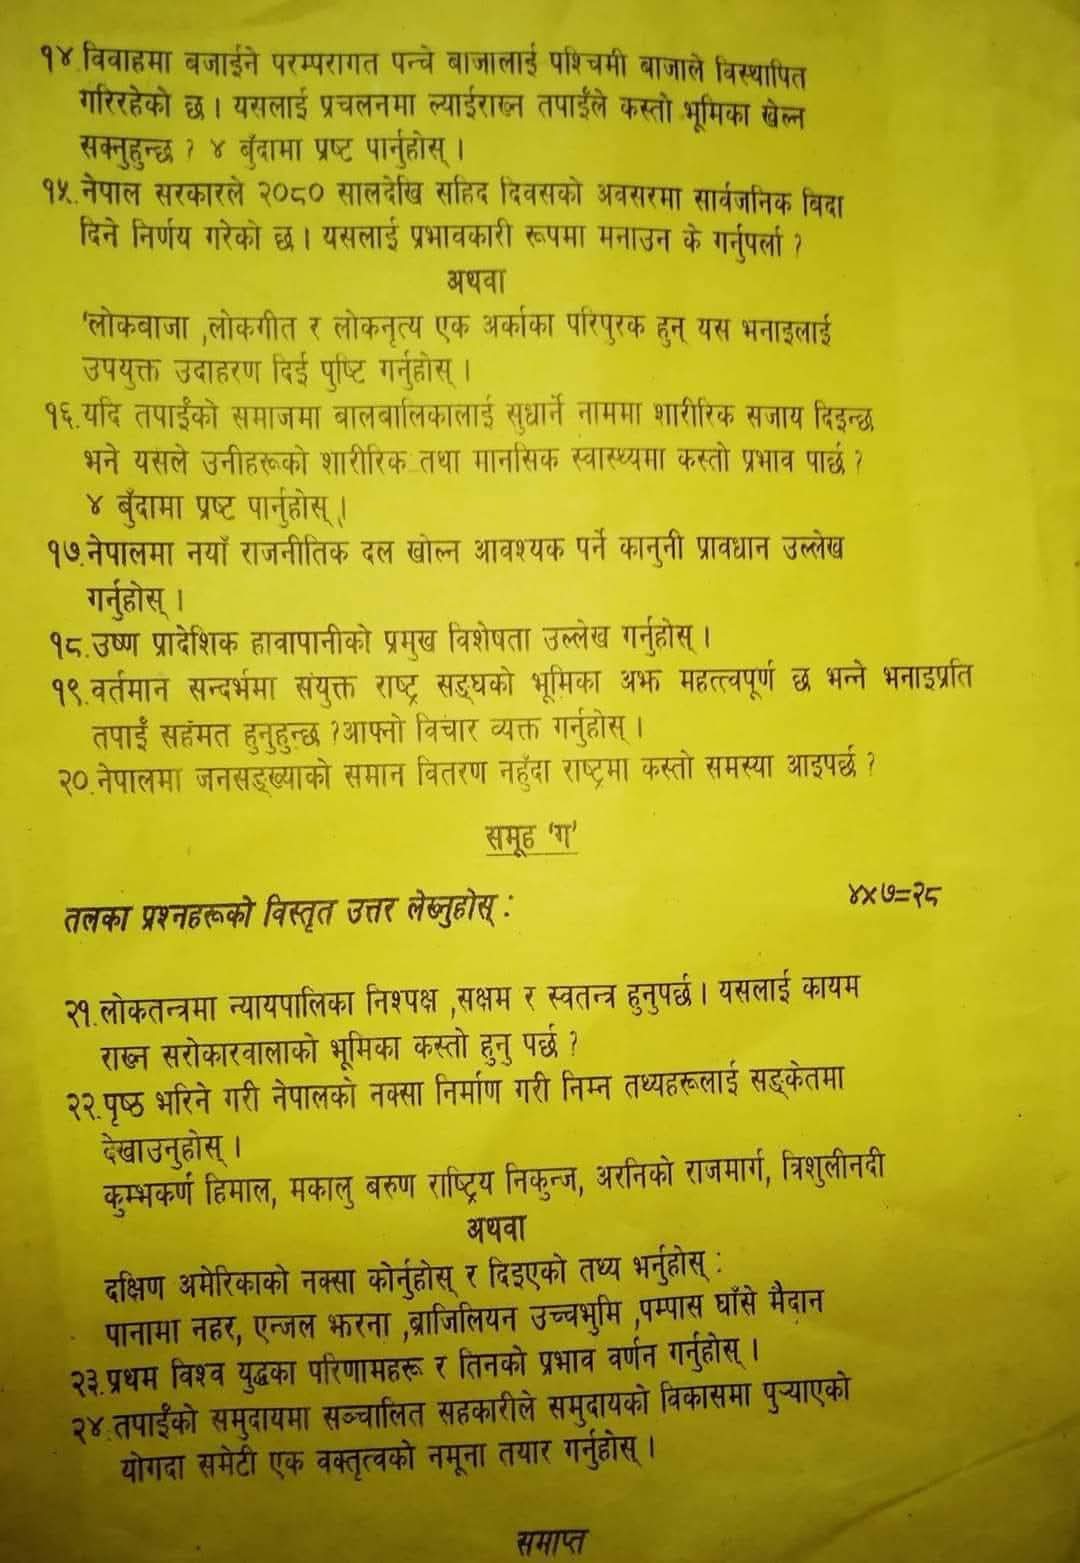 १४.विवाहमा बजाईने परम्परागत पन्चे बाजालाई पश्चिमी बाजाले विस्थापित
गरिरहेको छ । यसलाई प्रचलनमा ल्याईराख्न तपाईंले कस्तो भूमिका खेल्न
सक्नुहुन्छ ? ४ बुँदामा प्रष्ट पार्नुहोस् ।
१५.नेपाल सरकारले २०८० सालदेखि सहिद दिवसको अवसरमा सार्वजनिक बिदा
दिने निर्णय गरेको छ । यसलाई प्रभावकारी रूपमा मनाउन के गर्नुपर्ला ?
अथवा
'लोकबाजा ,लोकगीत र लोकनृत्य एक अर्काका परिपुरक हुन् यस भनाइलाई
उपयुक्त उदाहरण दिई पुष्टि गर्नुहोस् ।
१६.यदि तपाईंको समाजमा बालबालिकालाई सुधार्ने नाममा शारीरिक सजाय दिइन्छ
भने यसले उनीहरूको शारीरिक तथा मानसिक स्वास्थ्यमा कस्तो प्रभाव पार्छ ?
४ बुँदामा प्रष्ट पार्नुहोस् ।
१७.नेपालमा नयाँ राजनीतिक दल खोल्न आवश्यक पर्ने कानुनी प्रावधान उल्लेख
गर्नुहोस् ।
१८.उष्ण प्रादेशिक हावापानीको प्रमुख विशेषता उल्लेख गर्नुहोस् ।
१९.वर्तमान सन्दर्भमा संयुक्त राष्ट्र सङ्घको भूमिका अझ महत्त्वपूर्ण छ भन्ने भनाइप्रति
तपाइँ सहमत हुनुहुन्छ ?आफ्नो विचार व्यक्त गर्नुहोस् ।
२०.नेपालमा जनसङ्ख्याको समान वितरण नहुँदा राष्ट्रमा कस्तो समस्या आइपर्छ ?
समूह 'ग'
तलका प्रश्नहरूको विस्तृत उत्तर लेख्नुहोस् : ४×७=२८
२१.लोकतन्त्रमा न्यायपालिका निश्पक्ष ,सक्षम र स्वतन्त्र हुनुपर्छ । यसलाई कायम
राख्न सरोकारवालाको भूमिका कस्तो हुनु पर्छ ?
२२.पृष्ठ भरिने गरी नेपालको नक्सा निर्माण गरी निम्न तथ्यहरूलाई सङ्केतमा
देखाउनुहोस् ।
कुम्भकर्ण हिमाल, मकालु बरुण राष्ट्रिय निकुन्ज, अरनिको राजमार्ग, त्रिशुलीनदी
अथवा
दक्षिण अमेरिकाको नक्सा कोर्नुहोस् र दिइएको तथ्य भर्नुहोस् :
पानामा नहर, एन्जल झरना ,ब्राजिलियन उच्चभुमि ,पम्पास घाँसे मैदान
२३.प्रथम विश्व युद्धका परिणामहरू र तिनको प्रभाव वर्णन गर्नुहोस् ।
२४.तपाईंको समुदायमा सञ्चालित सहकारीले समुदायको विकासमा पुर्‍याएको
योगदा समेटी एक वक्तृत्वको नमूना तयार गर्नुहोस् ।
समाप्त